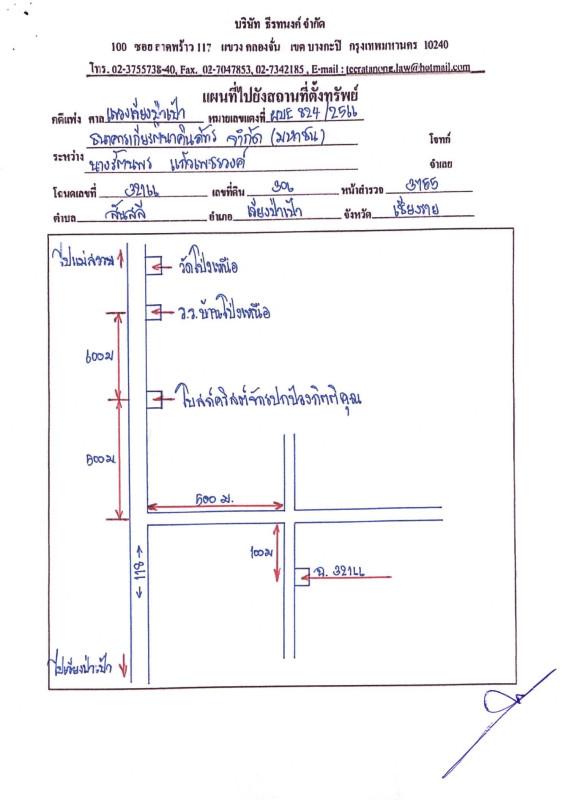 บริษัท ธีรทนงค์ จำกัด
100 ซอย ลาดพร้าว 117 แขวง คลองจั่น เขต บางกะปิ กรุงเทพมหานคร 10240
โทร. 02-3755738-40, Fax. 02-7047853, 02-7342185 , E-mail : teeratanong.law@hotmail.com
แผนที่ไปยังสถานที่ตั้งทรัพย์
คดีแพ่ง ศาล แขวงเวียงป่าเป้า หมายเลขแดงที่ ผบE 824/2566
ธนาคารเกียรตินาคินภัทร จำกัด (มหาชน) โจทก์
ระหว่าง
นางรัตนพร แก้วเพชรวงค์ จำเลย
โฉนดเลขที่ 32166 เลขที่ดิน 306 หน้าสำรวจ 3785
ตำบล สันสลี อำเภอ เวียงป่าเป้า จังหวัด เชียงราย
ไปแม่สรวย
วัดโป่งเหนือ
ร.ร.บ้านโป่งเหนือ
600 ม
โบสถ์คริสต์จักรปกป้องกิตติคุณ
500 ม
500 ม.
100 ม
118
ฉ. 32166
ไปเวียงป่าเป้า